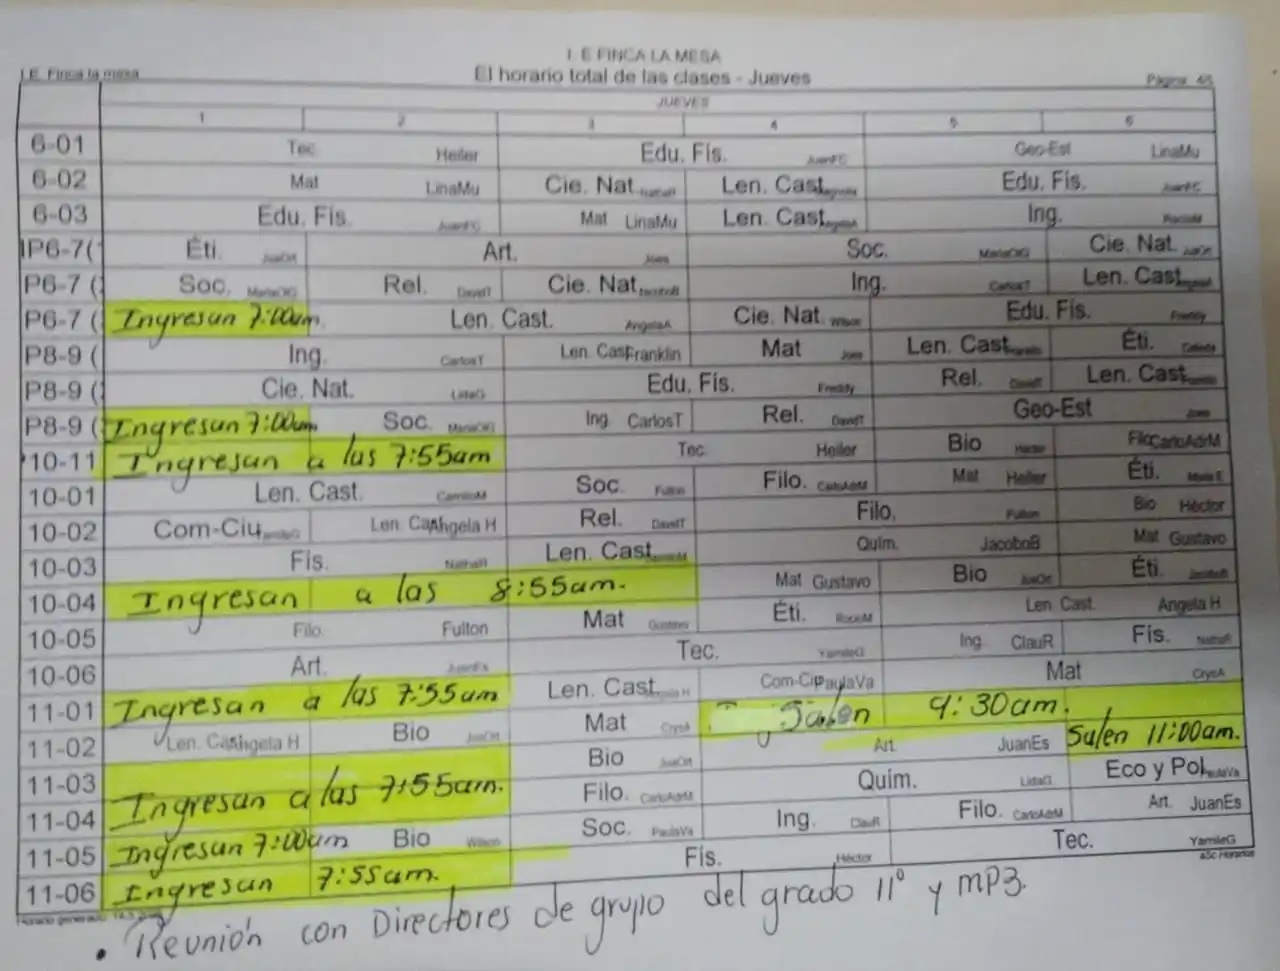 I. E FINCA LA MESA
I.E. Finca la mesa
El horario total de las clases - Jueves
Página 4/5
JUEVES
1 2 3 4 5 6
6-01 Tec Heiler Edu. Fís. JuanFC Geo-Est LinaMu
6-02 Mat LinaMu Cie. Nat. Len. Cast. Edu. Fís. JuanFC
6-03 Edu. Fís. JuanFC Mat LinaMu Len. Cast. AngelaA Ing. RocioM
IP6-7( Éti. JuaOrt Art. Joes Soc. MariaOlG Cie. Nat. JuaOrt
P6-7 ( Soc. MariaOlG Rel. DavidT Cie. Nat. JacoboB Ing. CarlosT Len. Cast.
P6-7 ( Ingresan 7:00am. Len. Cast. AngelaA Cie. Nat. Wilson Edu. Fís. Freddy
P8-9 ( Ing. CarlosT Len. Cas Franklin Mat Joes Len. Cast. Éti.
P8-9 ( Cie. Nat. LidaG Edu. Fís. Freddy Rel. DavidT Len. Cast.
P8-9 ( Ingresan 7:00am Soc. MariaOlG Ing CarlosT Rel. DavidT Geo-Est Joes
10-11 Ingresan a las 7:55am Tec Heiler Bio Héctor Filo CarloAdrM
10-01 Len. Cast. CamiloM Soc. Fulton Filo. CarloAdrM Mat Heiler Éti. Maria E
10-02 Com-Ciu Len. Ca Angela H Rel. DavidT Filo. Fulton Bio Héctor
10-03 Fís. NathaR Len. Cast. Quim. JacoboB Mat Gustavo
10-04 Ingresan a las 8:55am. Mat Gustavo Bio JuaOrt Éti. JacoboB
10-05 Filo. Fulton Mat Gustavo Éti. RocioM Len. Cast. Angela H
10-06 Art. JuanEs Tec. YamileG Ing. ClauR Fís. NathaR
11-01 Ingresan a las 7:55am Len. Cast. Angela H Com-Ciu PaulaVa Mat CrysA
11-02 Len. Ca Angela H Bio JuaOrt Mat CrysA Salen 9:30am.
11-03 Ingresan a las 7:55am. Bio JuaOrt Art. JuanEs Salen 11:00am.
11-04 Filo. CarloAdrM Quim. LidaG Eco y Pol. PaulaVa
11-05 Ingresan 7:00am Bio Wilson Soc. PaulaVa Ing. ClauR Filo. CarloAdrM Art. JuanEs
11-06 Ingresan 7:55am. Fís. Héctor Tec. YamileG
Horario generado: aSc Horarios
• Reunión con Directores de grupo del grado 11° y MP3.